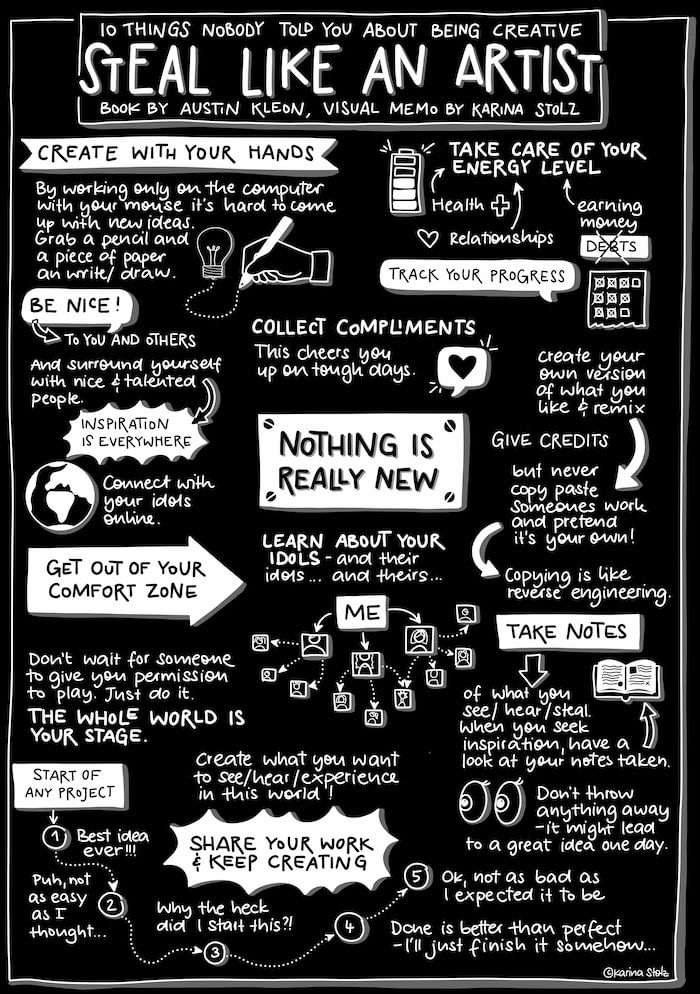 10 THINGS NOBODY TOLD YOU ABOUT BEING CREATIVE
STEAL LIKE AN ARTIST
BOOK BY AUSTIN KLEON, VISUAL MEMO BY KARINA STOLZ
CREATE WITH YOUR HANDS
By working only on the computer
with your mouse it's hard to come
up with new ideas.
Grab a pencil and
a piece of paper
an write/ draw.
TAKE CARE OF YOUR
ENERGY LEVEL
Health
Relationships
earning
money
DEBTS
TRACK YOUR PROGRESS
BE NICE!
TO YOU AND OTHERS
And surround yourself
with nice & talented
people.
INSPIRATION
IS EVERYWHERE
Connect with
your idols
online.
COLLECT COMPLIMENTS
This cheers you
up on tough days.
create your
own version
of what you
like & remix
GIVE CREDITS
but never
copy paste
someones work
and pretend
it's your own!
Copying is like
reverse engineering.
NOTHING IS
REALLY NEW
LEARN ABOUT YOUR
IDOLS - and their
idols... and theirs...
ME
GET OUT OF YOUR
COMFORT ZONE
Don't wait for someone
to give you permission
to play. Just do it.
THE WHOLE WORLD IS
YOUR STAGE.
TAKE NOTES
of what you
see/ hear/steal.
When you seek
inspiration, have a
look at your notes taken.
Don't throw
anything away
-it might lead
to a great idea one day.
Create what you want
to see/hear/experience
in this world!
SHARE YOUR WORK
& KEEP CREATING
START OF
ANY PROJECT
1 Best idea
ever!!!
Puh, not
as easy
as I
thought...
2
Why the heck
did I start this?!
3
4
Done is better than perfect
-I'll just finish it somehow...
5 Ok, not as bad as
I expected it to be
©Karina Stolz